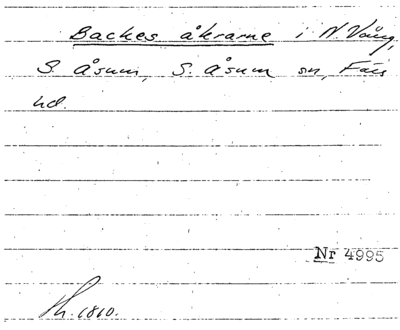 Backes åkrarne i N. Vång,
S. Åsum, S. Åsum sn, Färs
hd.
Nr 4995
Sk. 1810.